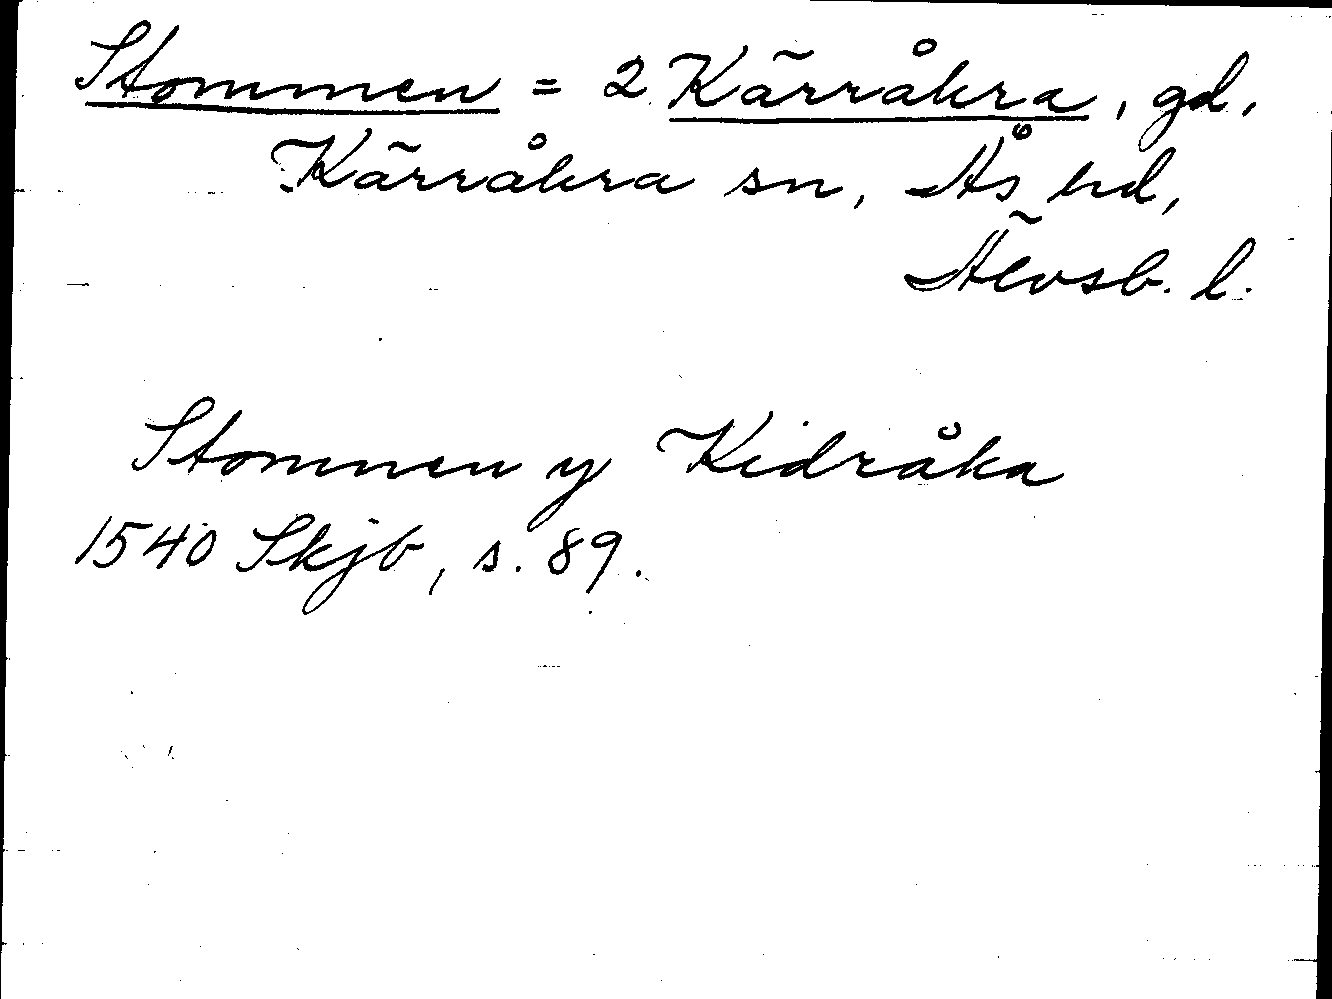 Stommen = 2 Kärråkra, gd,
Kärråkra sn, Ås hd,
Älvsb. l.
Stommen y Kidråka
1540 Skjb, s. 89.